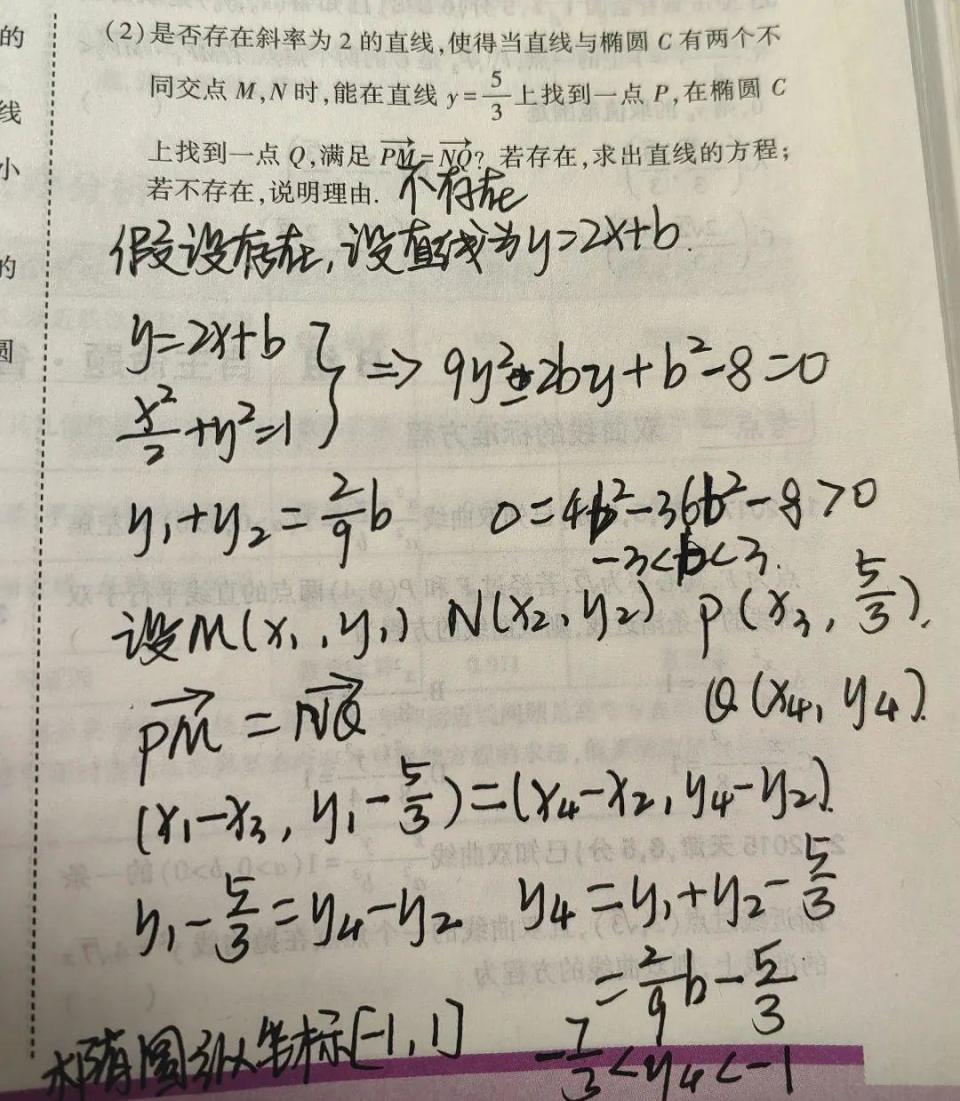 的
线
小
的
圆
(2)是否存在斜率为2的直线,使得当直线与椭圆C有两个不
同交点M,N时,能在直线y=5/3上找到一点P,在椭圆C
上找到一点Q,满足PM→=NQ→?若存在,求出直线的方程;
若不存在,说明理由. 不存在
假设存在,设直线为y=2x+b.
y=2x+b
x²/2+y²=1 } => 9y²-2by+b²-8=0
y₁+y₂=2/9b 0=4b²-36b²-8>0
-3<b<3.
设M(x₁,y₁) N(x₂,y₂) P(x₃,5/3).
Q(x₄,y₄).
PM→=NQ→
(x₁-x₃,y₁-5/3)=(x₄-x₂,y₄-y₂).
y₁-5/3=y₄-y₂ y₄=y₁+y₂-5/3
=2/9b-5/3
圆纵坐标[-1,1] -7/3<y₄<-1